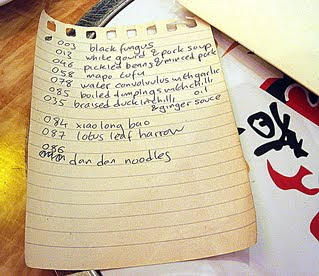 003 black fungus
012 white gourd & pork soup
046 pickled beans & minced pork
058 mapo tufu
079 water convolvulus with garlic
085 boiled dumplings with chilli oil
035 braised duck in chilli & ginger sauce
084 xiao long bao
087 lotus leaf harrow
086
dan dan noodles